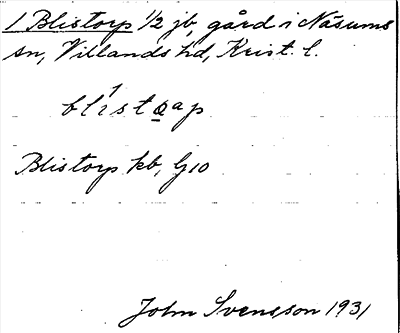 1 Blistorp 1/2 jb, gård i Näsums
sn, Villands hd, Krist. l.
blistap
Blistorp kb, G10
John Svensson 1931